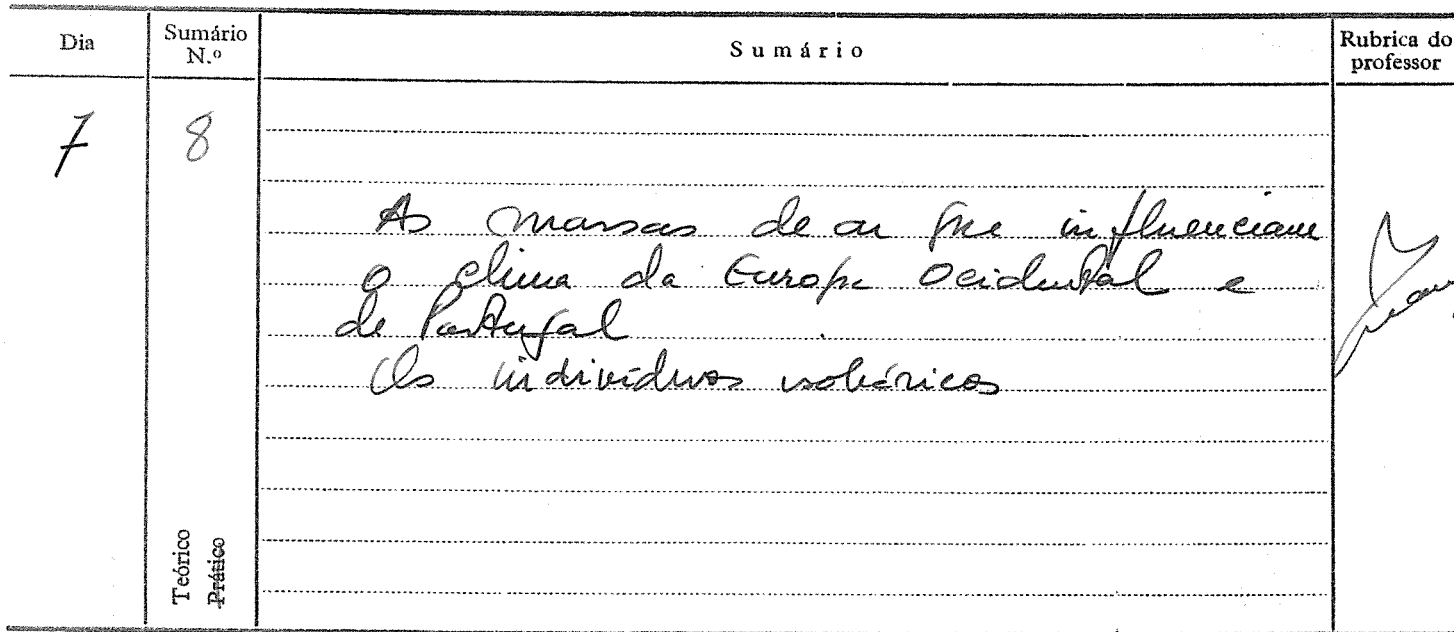 Dia
Sumário N.º
Sumário
Rubrica do professor
7
8
As massas de ar que influenciam
o clima da Europa Ocidental e
de Portugal
Os indivíduos isobáricos
Teórico
Prático